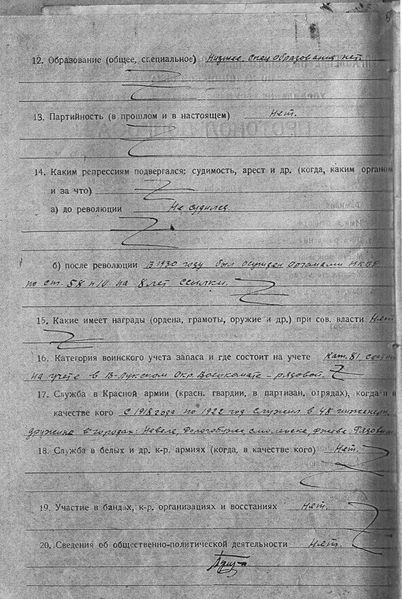 12. Образование (общее, специальное) Низшее спец образования нет
13. Партийность (в прошлом и в настоящем) Нет.
14. Каким репрессиям подвергался: судимость, арест и др. (когда, каким органом
и за что)
а) до революции Не судился
б) после революции В 1930 году был осужден Органами НКВД
по ст. 58 п/10 на 8 лет ссылки.
15. Какие имеет награды (ордена, грамоты, оружие и др.) при сов. власти Нет
16. Категория воинского учета запаса и где состоит на учете
на учете в В-Лукском Окр Военкомате - рядовой.
17. Служба в Красной армии (красн. гвардии, в партизан, отрядах), когда и
качестве кого с 1918 года по 1922 год служил в
в городах: Невеле, Смоленске,
18. Служба в белых и др. к-р. армиях (когда, в качестве кого) Нет.
19. Участие в бандах, к-р. организациях и восстаниях Нет.
20. Сведения об общественно-политической деятельности Нет.